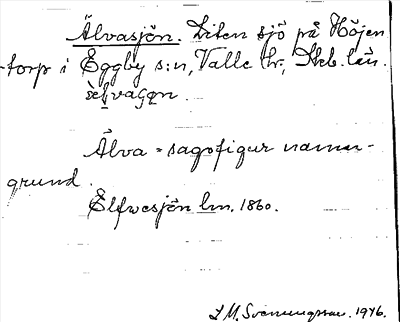 Älvasjön. Liten sjö på Höjen
torp i Eggby s:n, Valle hr., Skb. län.
Älva = sagofigur namn-
grund.
Elfvesjön hm. 1860.
J M. Svenungsson. 1946.